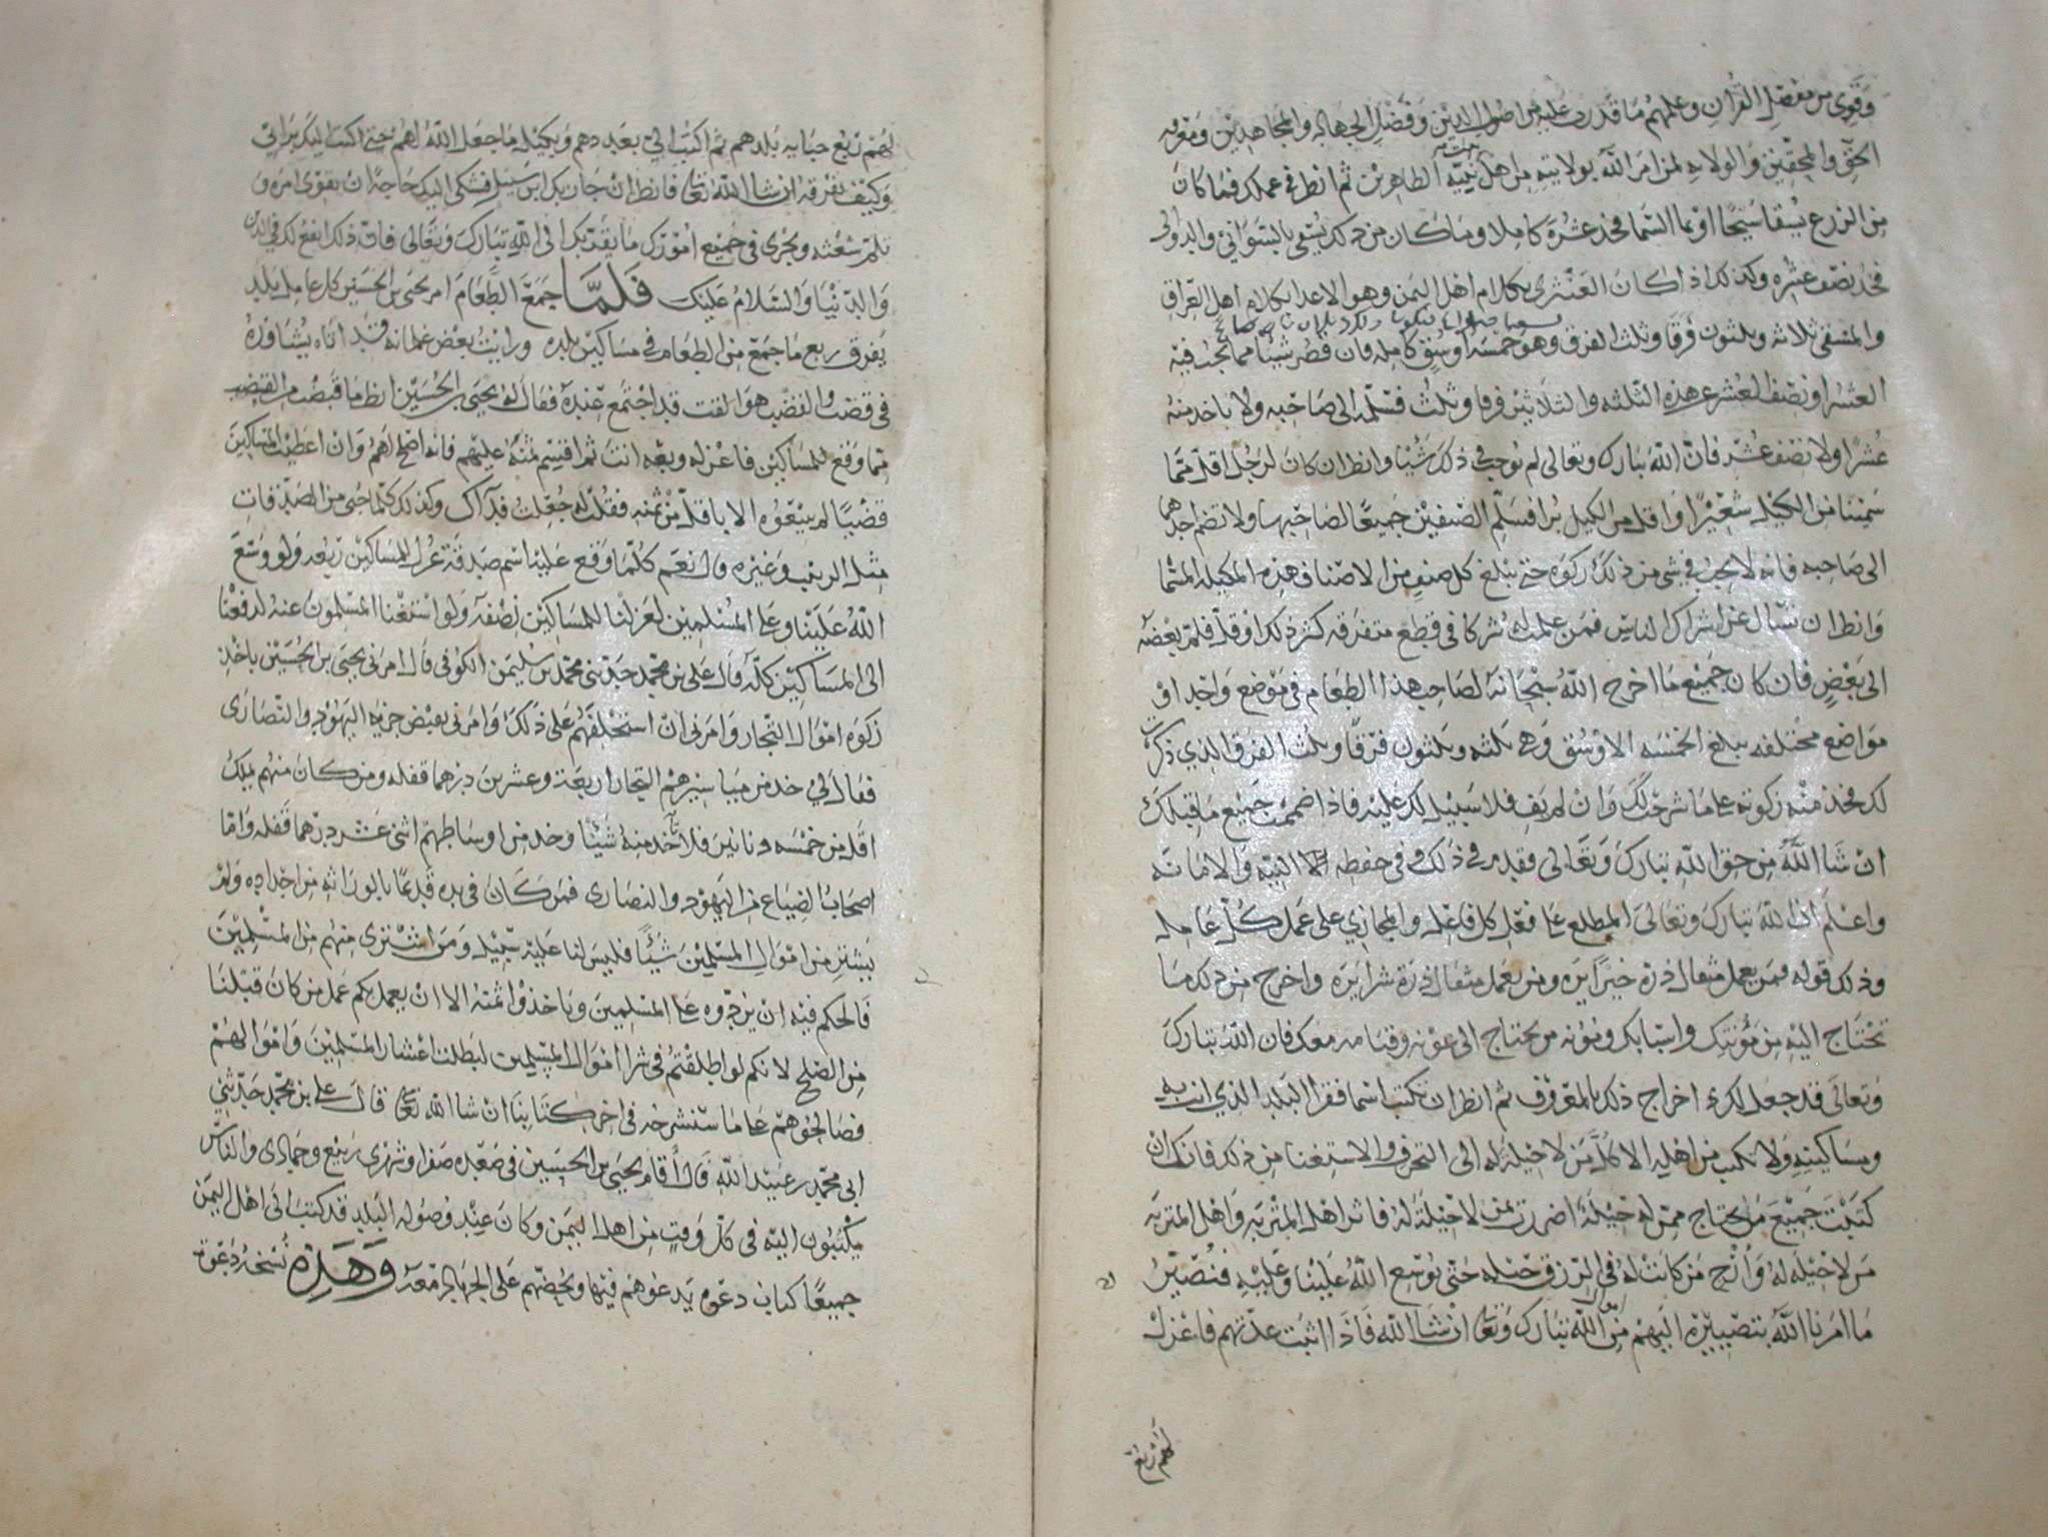 وقوى من مفصل القرآن وعلمهم ما قدرت عليه من اصول الدين وفضل الجهاد والمجاهدين ومعرفه
الحق والمحقين والولايه لمن امر الله بولايته من اهل بيت نبيه الطاهرين ثم انظر في عملك فما كان
من الزرع يسقا سيحا او بما السما فخذ عشره كاملا وما كان من ذلك يسقي بالسواني والدوالي
فخذ نصف عشره وكذلك اذا كان العثري بكلام اهل اليمن وهو الاعدا بكلام اهل العراق
والمسقى ثلاثه وثلثون فرقا وثلث الفرق وهو خمسه اوسق كامله فان قصر شيئا مما يجب فيه
العشر او نصف العشر عن هذه الثلثه والثلاثين فرقا وثلث فسلمه الى صاحبه ولا ياخذ منه
عشرا ولا نصف عشر فان الله تبارك وتعالى لم يوجب في ذلك شيا وانظر ان كان لرجل اقل مما
سمينا من الكيل شعيرا واقل من الكيل برا فسلم الصنفين جميعا لصاحبهما ولا تضم احدهما
الى صاحبه فانه لا يجب في شي من ذلك زكوه حتى يبلغ كل صنف من الاصناف هذه المكيله المسما
وانظر ان تسال عن اشراك الناس فمن علمت له شركا في قطع متفرقه كثر ذلك او قل فلم بعضه
الى بعض فان كان جميع ما اخرج الله سبحانه لصاحب هذا الطعام في موضع واحد او
مواضع مختلفه يبلغ الخمسه الاوسق وهي ثلثه وثلثون فرقا وثلث الفرق الذي ذكرت
لك فخذ منه زكوته على ما شرحت لك وان لم يف فلا سبيل لك عليه فاذا ضممت جميع ما قبلك
ان شا الله من حق الله تبارك وتعالى فقدم في ذلك وفي حفظه النيه والامانه
واعلم ان الله تبارك وتعالى المطلع على فعل كل فاعل والمجازي على عمل كل عامل
وذلك قوله فمن يعمل مثقال ذرة خيرا يره ومن يعمل مثقال ذرة شرا يره واخرج من ذلك ما
تحتاج اليه من مؤنتك واسبابك ومؤنه من يحتاج الى عونه وقيامه معك فان الله تبارك
وتعالى قد جعل لك اخراج ذلك بالمعروف ثم انظر ان تكتب اسما فقرا البلد الذي انت به
ومساكينه ولا تكتب من اهله الا كل من لا حيلة له الى التحرف والاستغنا من ذلك فانك ان
كتبت جميع من يحتاج ممن له حيلة اضررت بمن لا حيلة له فاثر اهل المثربه واهل المتربه
من لا حيله له وأرج من كانت له في الرزق حيله حتى يوسع الله علينا وعليه فنصير
ما امرنا الله بتصييره اليهم من الله تبارك وتعالى ان شا الله فاذا اثبت عدتهم فاعزل
لهم ربع
لهم ربع جبايه بلدهم ثم اكتب الي بعددهم وبكيل ما جعل الله لهم حتى اكتب اليك برائي
وكيف تفرقه ان شا الله تعالى فانظر ان جا بك ابن سبيل فشكى اليك حاجة ان تقوى امره و
تلم شعثه وتجرى في جميع امورك ما يقربك الى الله تبارك وتعالى فان ذلك انفع لك في الدين
والدنيا والسلام عليك فلما جمع الطعام امر يحيى بن الحسين كل عامل بلد
يفرق ربع ما جمع من الطعام في مساكين بلده ورايت بعض غلمانه قد اتاه يشاوره
في قضب والقضب هو القت قد اجتمع عنده فقال له يحيى بن الحسين انظر ما قبضت من القضب
مما وقع للمساكين فاعزله وبعه انت ثم اقسم ثمنه عليهم فانه اصلح لهم وان اعطيت المساكين
قضبا لم يبيعوه الا باقل من ثمنه فقلت له جعلت فداك وكذلك كلما جبى من الصدقات
مثل الزبيب وغيره قال نعم كلما وقع علينا اسم صدقة عزل للمساكين ربعه ولو وسع
الله علينا وعلى المسلمين لعزلنا للمساكين نصفه ولو استغنا المسلمون عنه لدفعنا
الى المساكين كله قال علي بن محمد حدثني محمد بن سليمن الكوفي قال امرني يحيى بن الحسين باخذ
زكوه اموال التجار وامرني ان استحلفهم على ذلك وامرني بقبض جزية اليهود والنصارى
فقال لي خذ من مياسيرهم التجار اربعة وعشرين درهما قفله ومن كان منهم يملك
اقل من خمسه دنانير فلا تأخذ منه شيئا وخذ من اوساطهم اثني عشر درهما قفله واما
اصحاب الضياع من اليهود والنصارى فمن كان في يده قديما بالوراثه من اجداده ولم
يشتر من اموال المسلمين شيئا فليس لنا عليه سبيل ومن اشترى منهم من المسلمين
فالحكم فيه ان يردوه على المسلمين وياخذوا ثمنه الا ان يعمل بكم عمل من كان قبلنا
من الصلح لانكم لو اطلقتم في شرا اموال المسلمين لبطلت اعشار المسلمين واموالهم
فصالحوهم على ما سنشرحه في اخر كتابنا ان شا الله تعالى قال علي بن محمد حدثني
ابي محمد بن عبيد الله قال أقام يحيى بن الحسين في صعده صفر وشهري ربيع وجمادى والناس
يكتبون اليه في كل وقت من اهل اليمن وكان عند وصوله البلد قد كتب الى اهل اليمن
جميعا كتاب دعوه يدعوهم فيها ويحضهم على الجهاد معه وهذه نسخة دعوته